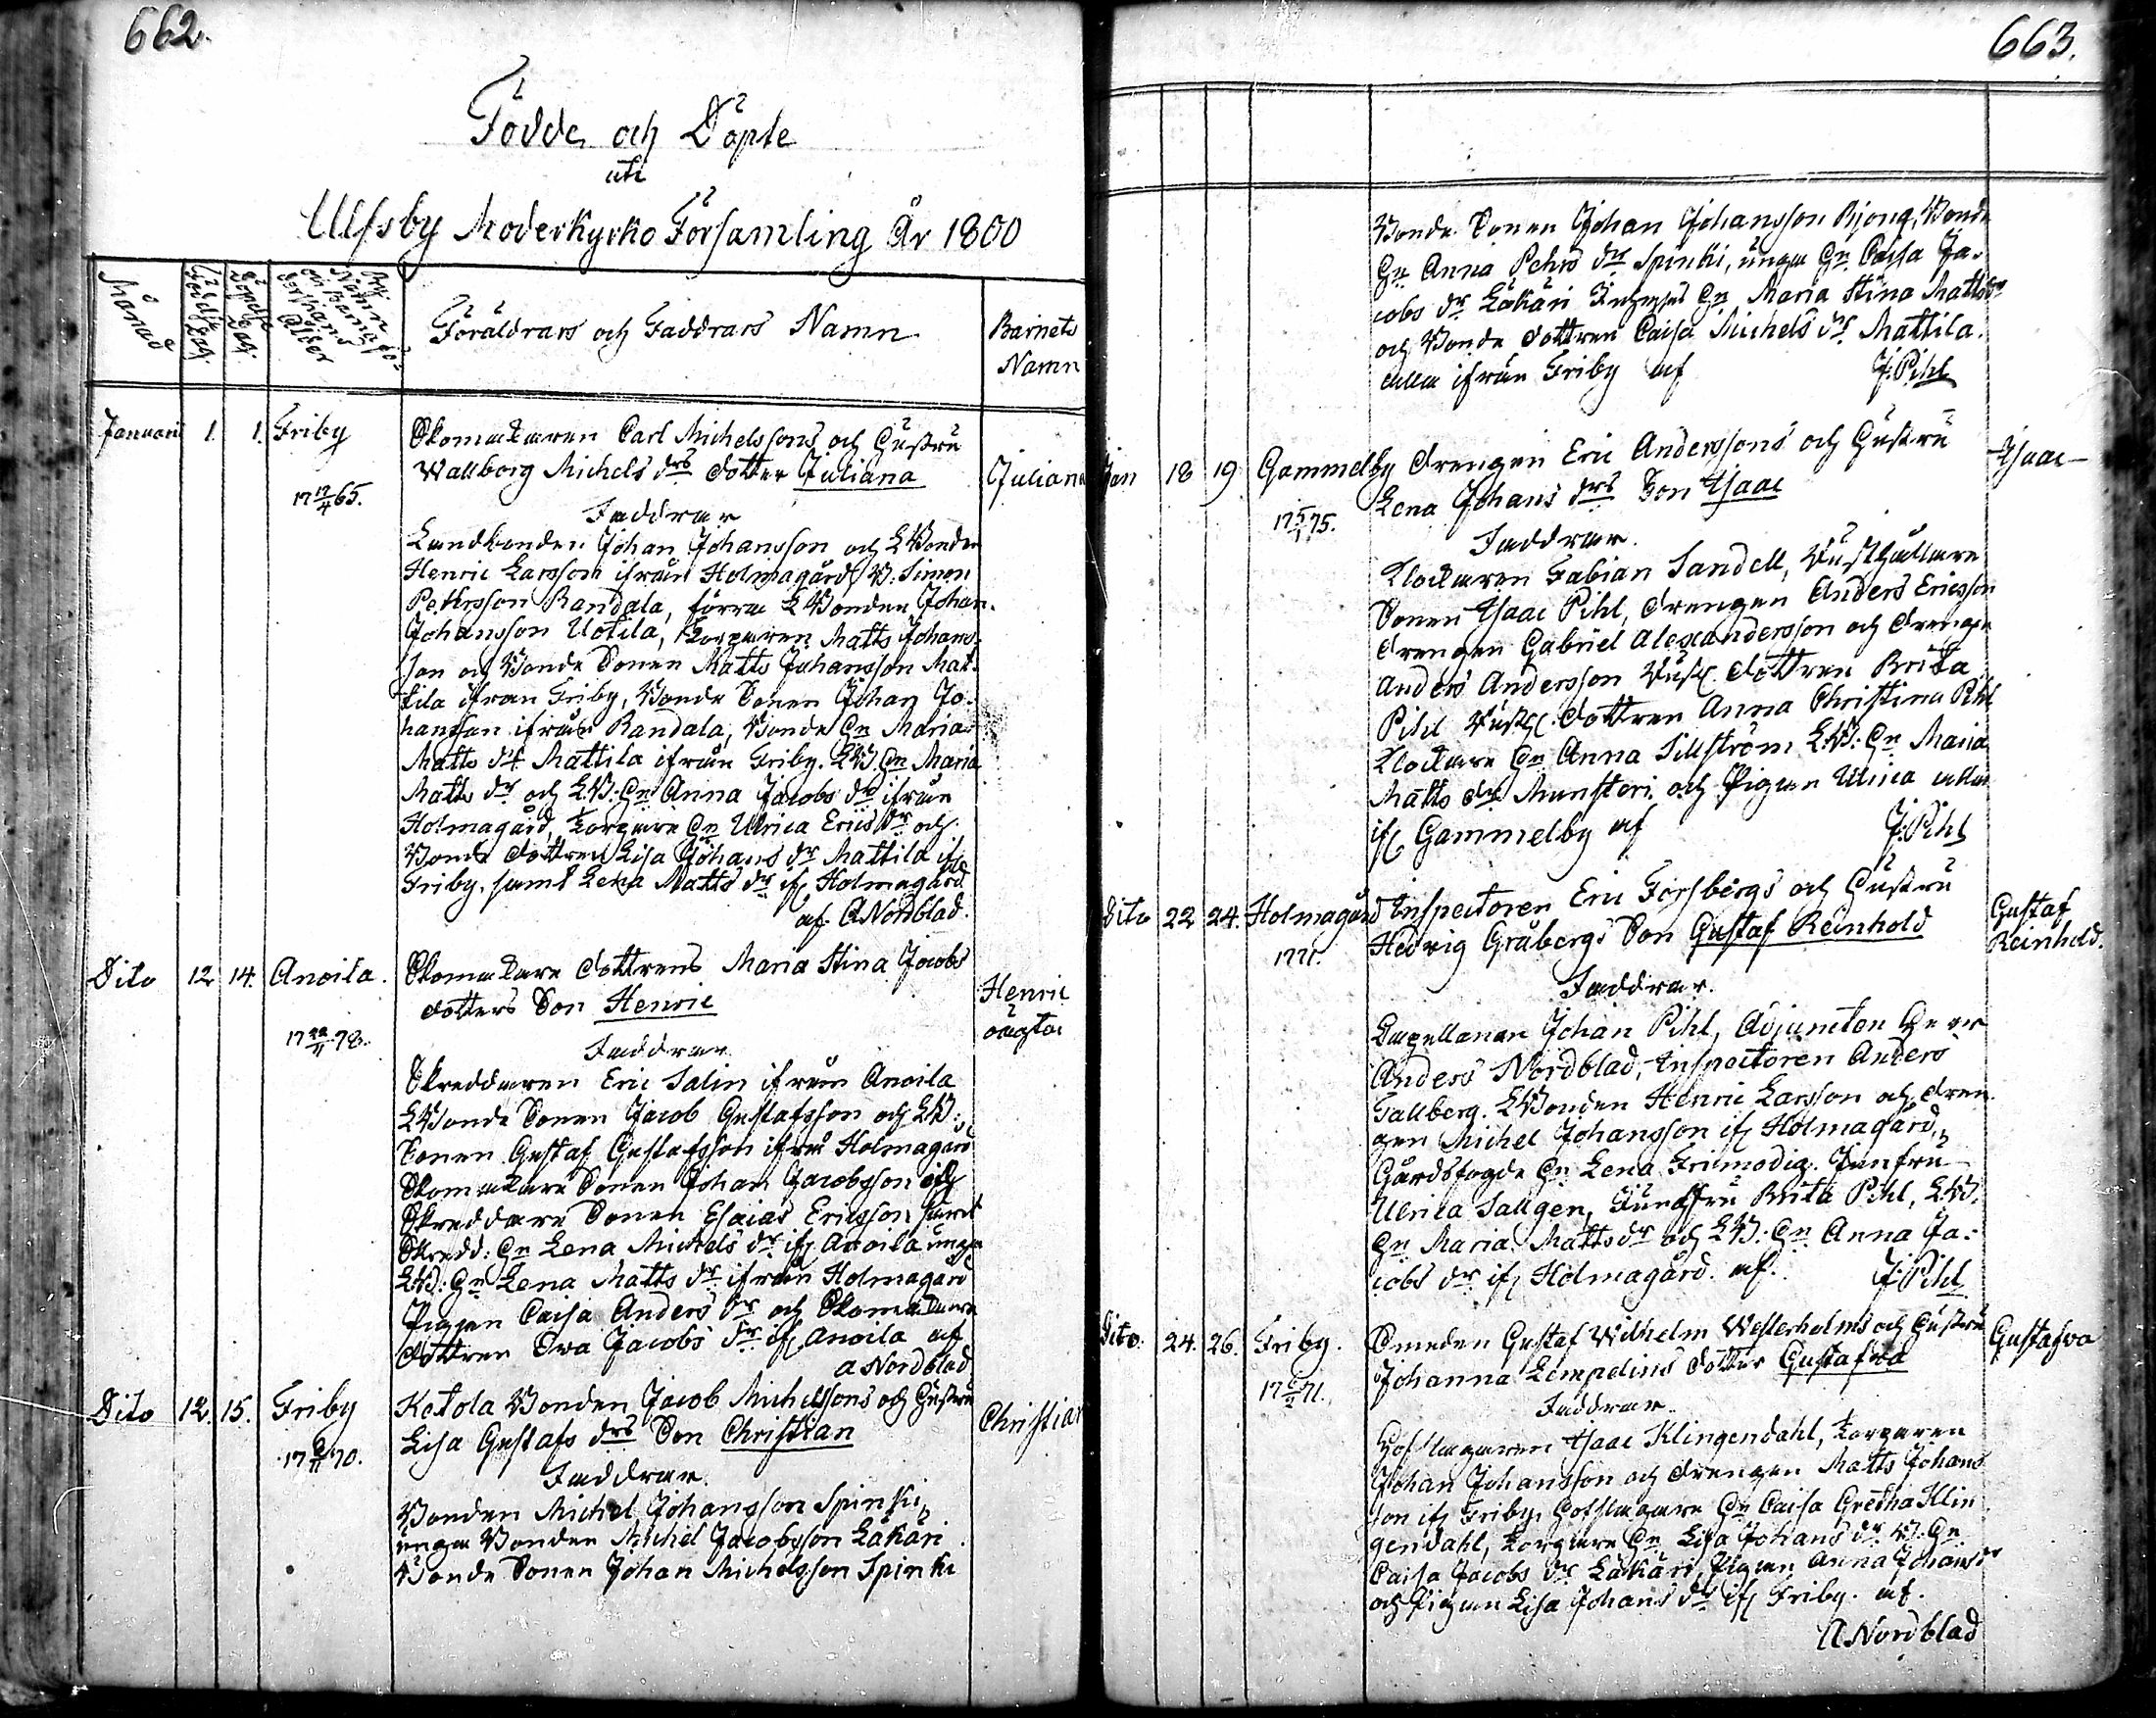 662.
Födde och Döpte
uti
Ulfsby Moderkyrko Församling År 1800
Månad
Födelse Dag.
Döpelse Dag.
Namn
Ålder
Föräldrars och Faddrars Namn
Barnets
Namn
Januarii 1. 1. Friby Skomakaren Carl Michelssons och Hustru
Wallborg Michels drs dotter Juliana Juliana
17 17/4 65.
Faddrar
Landbonden Johan Johansson och LBonden
Henric Larsson ifrån Holmagård, B. Simon
Pettersson Randala, förra LBonden Johan
Johansson Uotila, Torparen Matts Johans-
son och Bonde Sonen Matts Johansson Mat-
tila ifrån Friby, Bonde Sonen Johan Jo-
hansson ifrån Randala, Bonde Hu Maria
Matts dr Mattila ifrån Friby. LB. Hu Maria
Matts dr och LB: Hu Anna Jacobs dr ifrån
Holmagård, Torpare Hu Ulrica Erics dr och
Bonde dottren Lisa Johans dr Mattila if
Friby, samt Lena Matts dr if Holmagård
af. A Nordblad.
Dito 12 14. Anoila. Skomakare dottrens Maria Stina Jacobs
dotters Son Henric Henric
oägta
17 22/11 78.
Faddrar
Skreddaren Eric Salin ifrån Anoila
LBonde Sonen Jacob Gustafsson och LB:
Sonen Gustaf Gustafsson ifrån Holmagård
Skomakare Sonen Johan Jacobsson och
Skreddare Sonen Esaias Ericsson samt
Skredd: Hu Lena Michels dr if Anoila unga
LB: Hu Lena Matts dr ifrån Holmagård
Pigan Caisa Anders dr och Skomakare
dottren Eva Jacobs dr if Anoila af
A Nordblad
Dito 12. 15. Friby Ketola Bonden Jacob Michelssons och Hustru
Lisa Gustafs drs Son Christian Christian
17 /11 70.
Faddrar.
Bonden Michel Johansson Spinki,
unga Bonden Michel Jacobsson Läkäri
Bonde Sonen Johan Michelsson Spinki
663.
Bonde Sonen Johan Johansson Bjong, Bonde
Hu Anna Pehrs dr Spinki, unga Hu Caisa Ja-
cobs dr Läkäri Hu Maria Stina Matts dr
och Bonde dottren Caisa Michels dr Mattila.
alla ifrån Friby af J: Pihl
Jan 18 19 Gammelby drengen Eric Anderssons och Hustru Isaac
Lena Johans drs Son Isaac
17 5/ 75.
Faddrar.
Klockaren Fabian Sandell, Busthållare
Sonen Isaac Pihl, drengen Anders Ericsson
drengen Gabriel Alexandersson och drengen
Anders Andersson Busth. dottren Brita
Pihl Busth. dottren Anna Christina Pihl
Klockare Hu Anna Sillström LB: Hu Maria
Matts dr Munsteri och Pigan Ulrica alla
if Gammelby af J: Pihl
Dito 22 24. Holmagård Inspectoren Eric Forsbergs och Hustru Gustaf
Hedvig Gråbergs Son Gustaf Reinhold Reinhold.
1771.
Faddrar.
Capellanen Johan Pihl, Adjuncten Herr
Anders Nordblad, Inspectoren Anders
Tallberg. LBonden Henric Larsson och dren-
gen Michel Johansson if Holmagård,
Gårdsfogde Hu Lena Frimodig. Jungfru
Ulrica Sallgen, Jungfru Brita Pihl, LB.
Hu Maria Matts dr och LB: Hu Anna Ja-
cobs dr if Holmagård. af. J: Pihl
Dito. 24. 26. Friby. Smeden Gustaf Wilhelm Westerholms och Hustru Gustafva
Johanna Lempelius dotter Gustafva
17 / 71.
Faddrar.
Hofslagaren Isaac Klingendahl, Torparen
Johan Johansson och drengen Matts Johans-
son if Friby, Hofslagare Hu Caisa Gretha Klin-
gendahl, Torpare Hu Lisa Johans dr B. Hu
Caisa Jacobs dr Läkäri, Pigan Anna Johans dr
och Pigan Lisa Johans dr if Friby. af.
A Nordblad